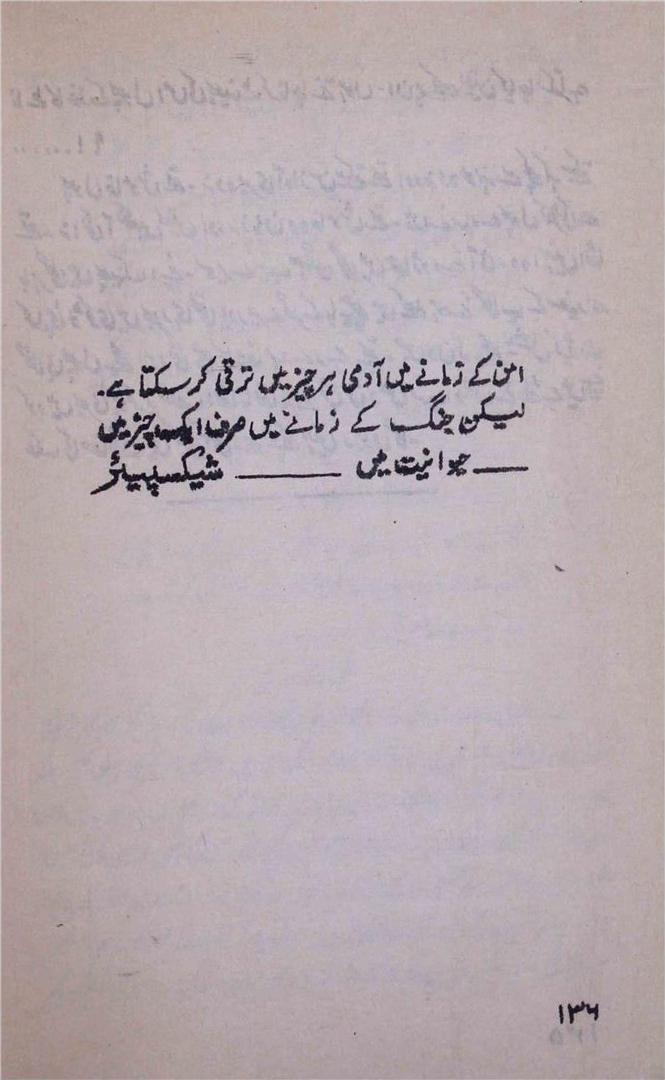 امن کے زمانے میں آدمی ہر چیز میں ترقی کر سکتا ہے۔
لیکن جنگ کے زمانے میں صرف ایک چیز میں
—— حیوانیت میں ———— شیکسپیئر
۱۳۶